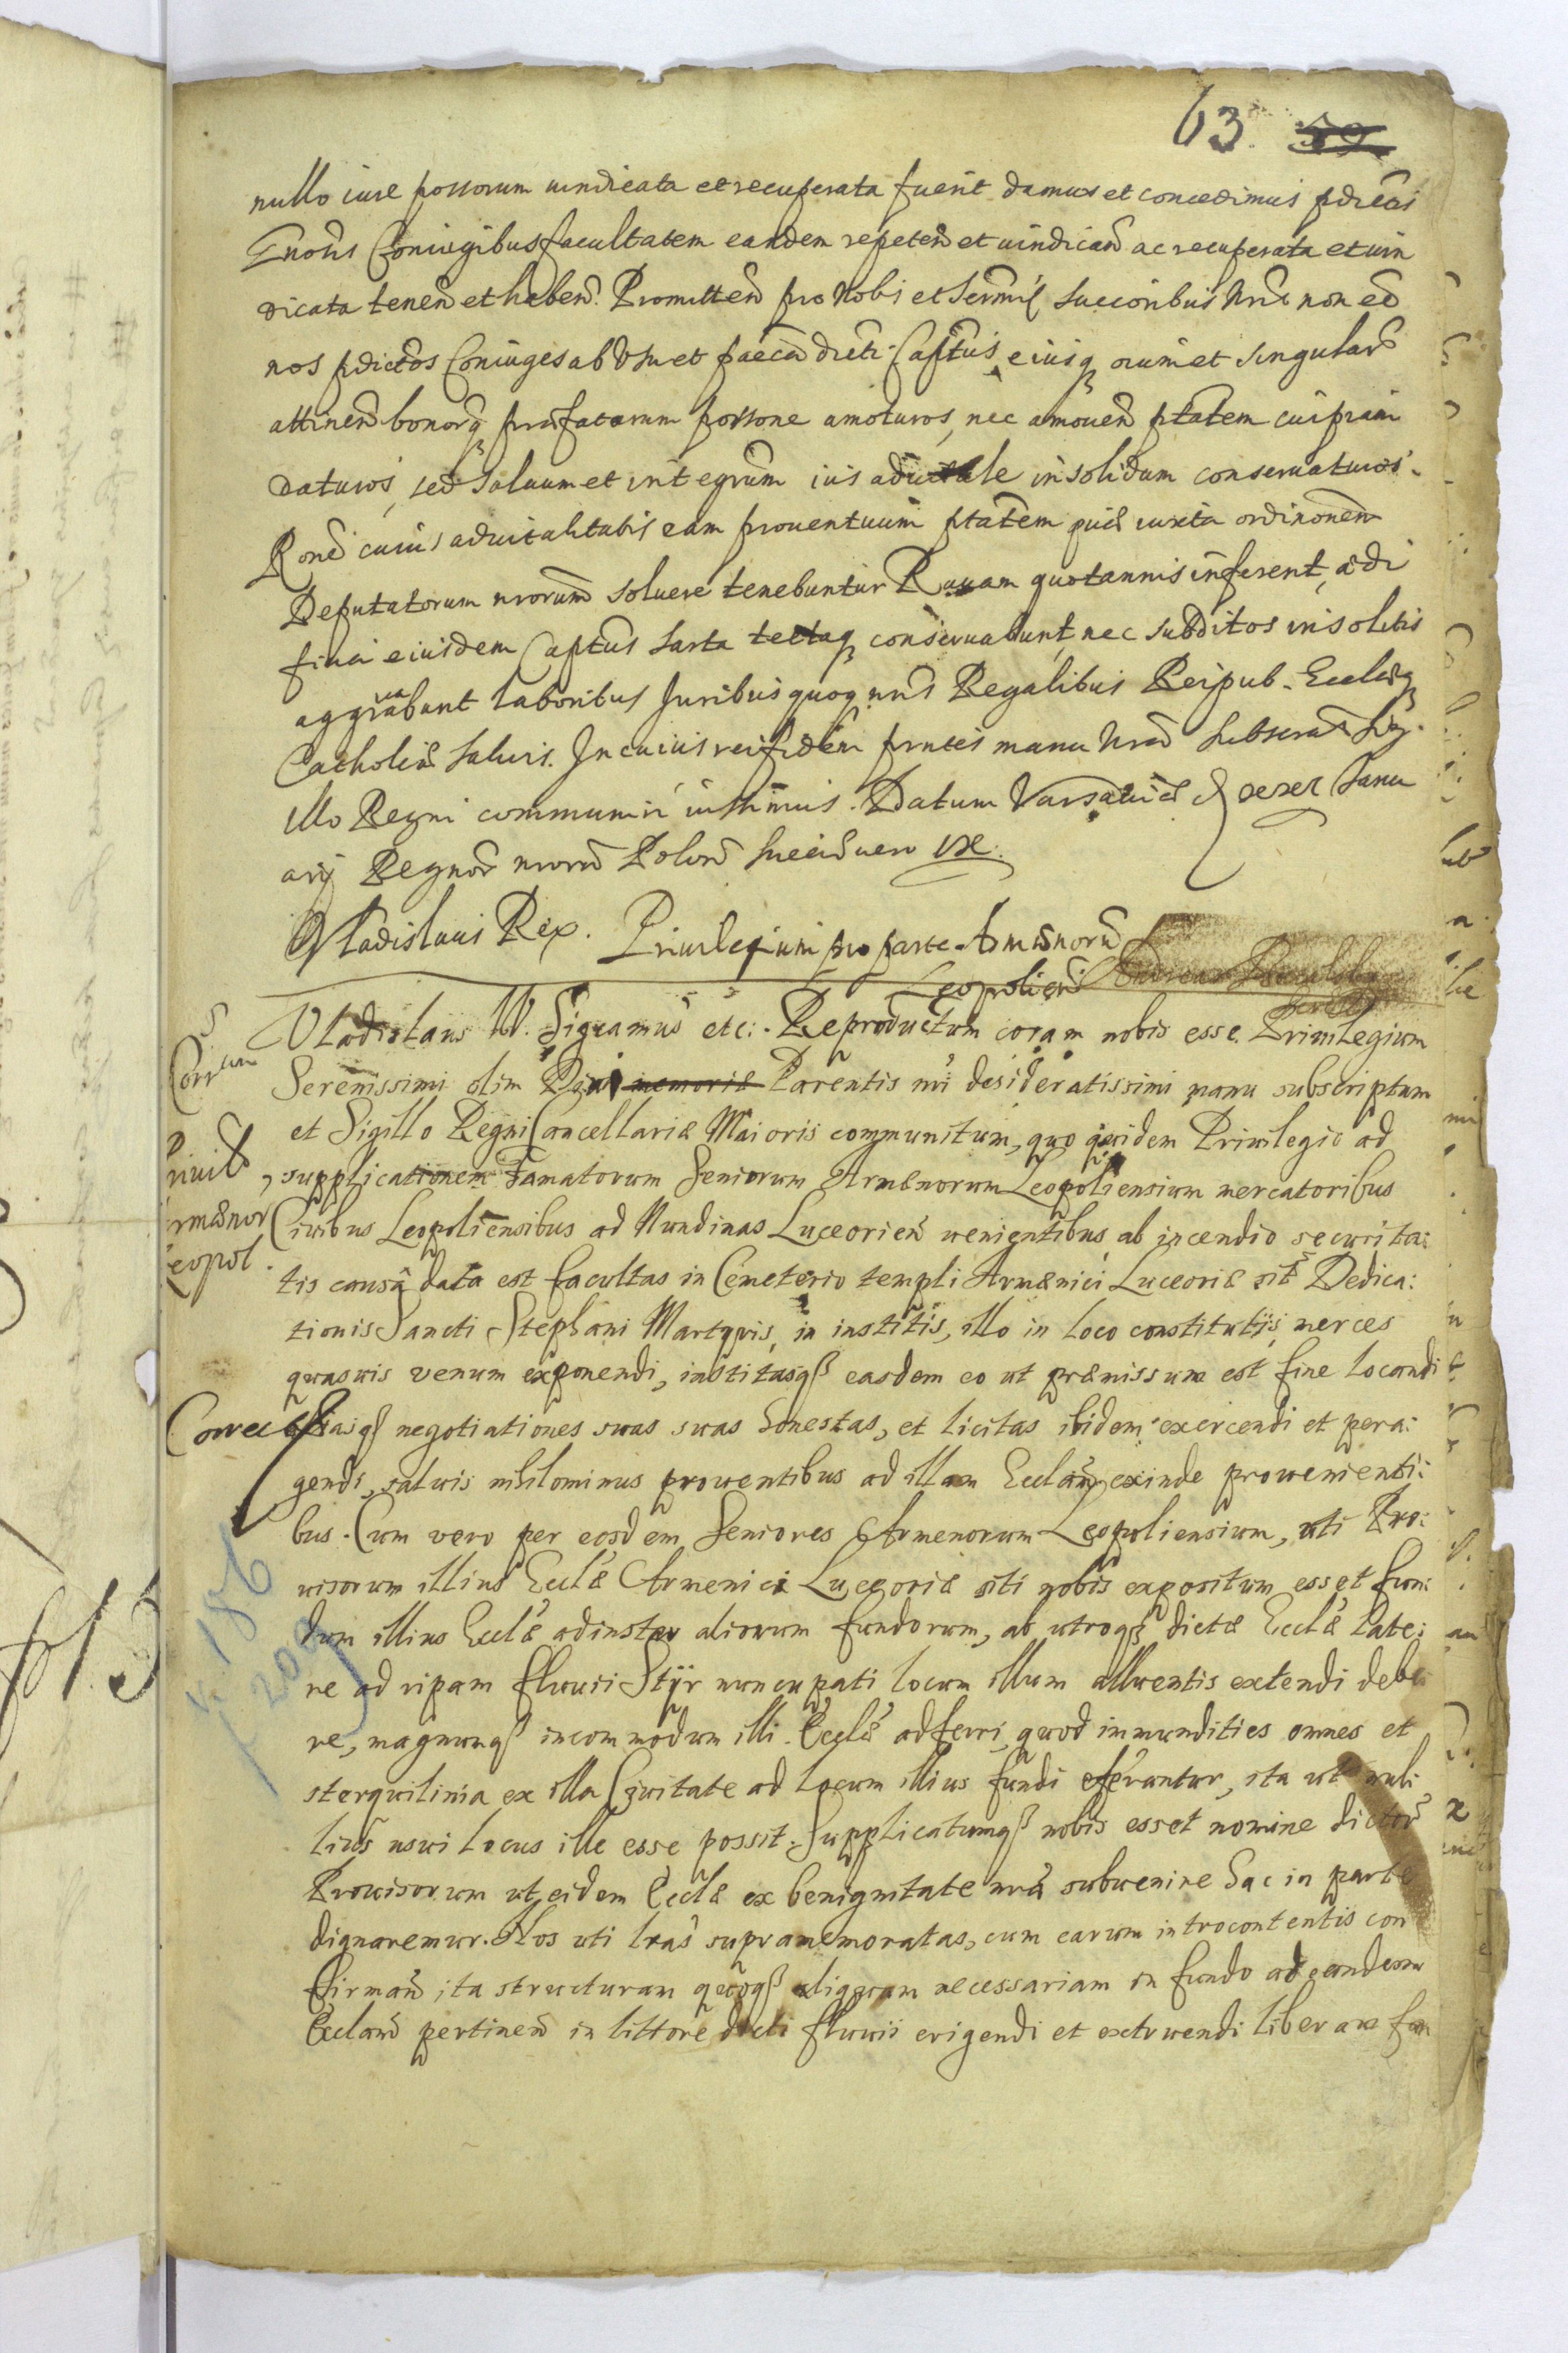 63. 59
nullo iure possorum uindicata et recuperata fuerit damus et concedimus pdictis
Gnosis Coniugibus facultatem eandem repeten et uindican ac recuperata et uin
dicata tenen et haben. Promitten pro Nobis et Sermis Succoribus Nris non eē
nos pdictos Coniuges ab Usu et paeca dicti Captus eiusq oium et singular
attinen bonorq praefatorum possone amoturos, nec amouen ptatem cuipiam
daturos, sed saluum et integrum ius aduitale in solidum conseruaturos.
Rone cuius aduitalitatis eam prouentuum ptatem quis iuxta ordinonem
Deputatorum nrorum soluere tenebuntur Rauam quotannis inferent, ædi
ficia eiusdem Captus sarta tectaq conseruabunt, nec subditos insolitis
aggrauabunt laboribus Juribus quoq nris Regalibus Reipub. Eccleq
Catholicæ saluis. In cuius rei fidem prntes manu Nra subscras Sig.
illo Regni communiri iussimus. Datum Varsauiæ d xxx Janu
arij Regnor nroru Polon Sueciæ uero IX.
Vladislaus Rex. Priuilegium pro parte Armænoru
Leopolien
Vladislaus IV. Significamus etc. Reproductum coram nobis esse Priuilegium
Corrtum
Serenissimi olim Diui memoriæ Parentis nri desideratissimi manu subscriptum
et Sigillo Regni Cancellariæ Maioris communitum, quo quidem Priuilegio ad
riuil
supplicationem Famatorum Seniorum Armænorum Leopoliensium mercatoribus
rmænor
Ciuibus Leopoliensibus ad Nundinas Luceorien uenientibus, ab incendio securita:
eopol.
tis causa data est facultas in Cemeterio templi Armænici Luceoriæ sit Dedica:
tionis Sancti Stephani Martyris, in institis, illo in loco constitutis, merces
quasuis venum exponendi, institasq easdem eo ut præmissum est fine locandi
Correct
aliasq negotiationes suas suas honestas, et licitas ibidem exercendi et pera:
gendi, saluis nihilominus prouentibus ad illam Ecclam exinde prouenienti:
bus. Cum vero per eosdem Seniores Armenorum Leopoliensium, uti Pro:
uisorum illius Eccl'æ Armenicæ Luceoriæ siti nobis expositum esset fun:
k. 186
dum illius Eccl'æ ad instar aliorum fundorum, ab utroq dictæ Eccl'æ late:
200
re ad ripam fluuii Styr nuncupati locum illum alluentis extendi debe
re, magnumq incommodum illi Eccl'æ adferri, quod immundities omnes et
sterquilinia ex illa Ciuitate ad locum illius fundi eferuntur, ita ut nuli
lius usui locus ille esse possit. Supplicatumq nobis esset nomine dictor
Prouisorum ut eidem Ecclæ ex benignitate nra subuenire hac in parte
dignaremur. Nos uti lras supramemoratas, cum earum introcontentis con
firman, ita structuram quoq aliquam necessariam in fundo ad eandem
Ecclam pertinen in littore dicti fluuii erigendi et extruendi liberam fa